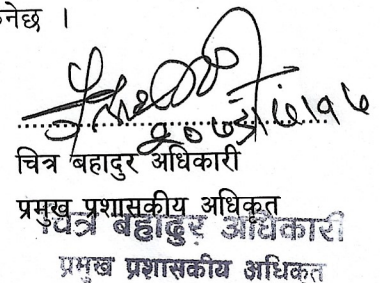 नेछ ।
चित्र बहादुर अधिकारी
प्रमुख प्रशासकीय अधिकृत
चित्र बहादुर अधिकारी
प्रमुख प्रशासकीय अधिकृत